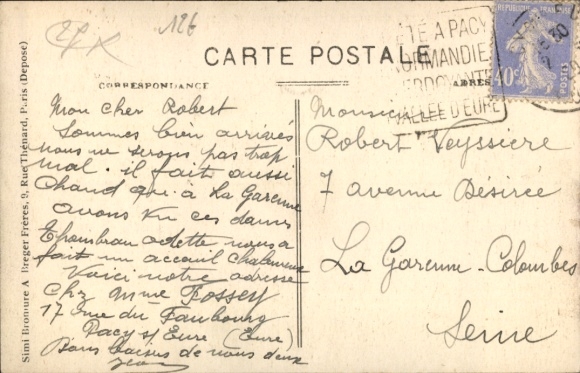 126
CARTE POSTALE
CORRESPONDANCE
ADRES
ÉTÉ A PACY
NORMANDIE
VERDOYANTE
VALLÉE D'EURE
REPUBLIQUE FRANÇAISE
40c
POSTES
30
Simi Bromure A Breger Frères, 9, Rue Thénard, Paris (Déposé)
Mon cher Robert
Sommes bien arrivés
nous ne serons pas trop
mal. il fait aussi
chaud qu'à La Garenne
avons vu ces dames
odette nous a
fait un acceuil chaleureux
Voici notre adresse
Chz Mme Fossey
17 rue du Faubourg
Pacy s/ Eure (Eure)
Bons baisers de nous deux
Jean
Monsieur
Robert Veyssiere
7 avenue Désirée
La Garenne-Colombes
Seine